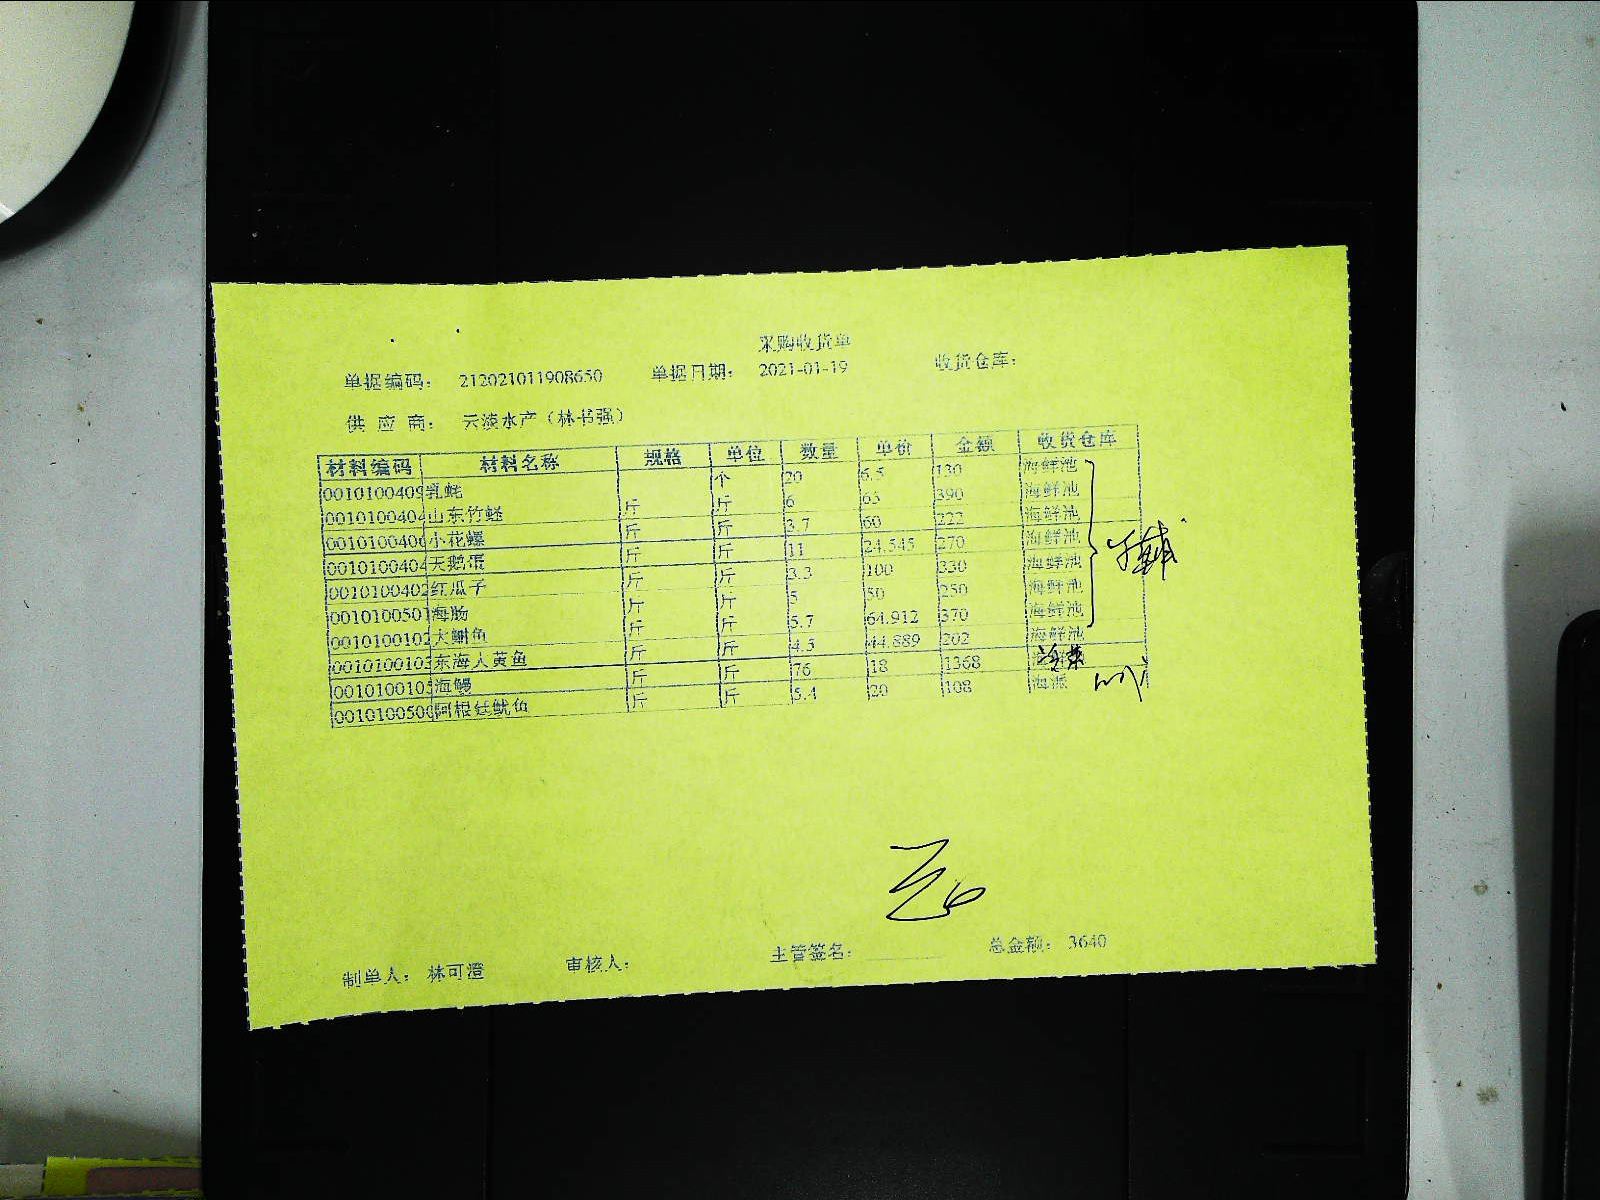 采购收货单
单据编码： 212021011908650 单据日期： 2021-01-19 收货仓库：
供 应 商： 云淡水产（林书强）
材料编码 材料名称 规格 单位 数量 单价 金额 收货仓库
0010100409 乳蛏 个 20 6.5 130 海鲜池
0010100404 山东竹蛏 斤 斤 6 65 390 海鲜池
0010100406 小花螺 斤 斤 3.7 60 222 海鲜池
0010100404 天鹅蛋 斤 斤 11 24.545 270 海鲜池
0010100402 红瓜子 斤 斤 3.3 100 330 海鲜池
0010100501 海肠 斤 斤 5 50 250 海鲜池
0010100102 大鮰鱼 斤 斤 5.7 64.912 370 海鲜池
0010100103 东海大黄鱼 斤 斤 4.5 44.889 202 海鲜池
0010100105 海鳗 斤 斤 76 18 1368
0010100500 阿根廷鱿鱼 斤 斤 5.4 20 108
制单人： 林可澄 审核人： 主管签名： 总金额： 3640